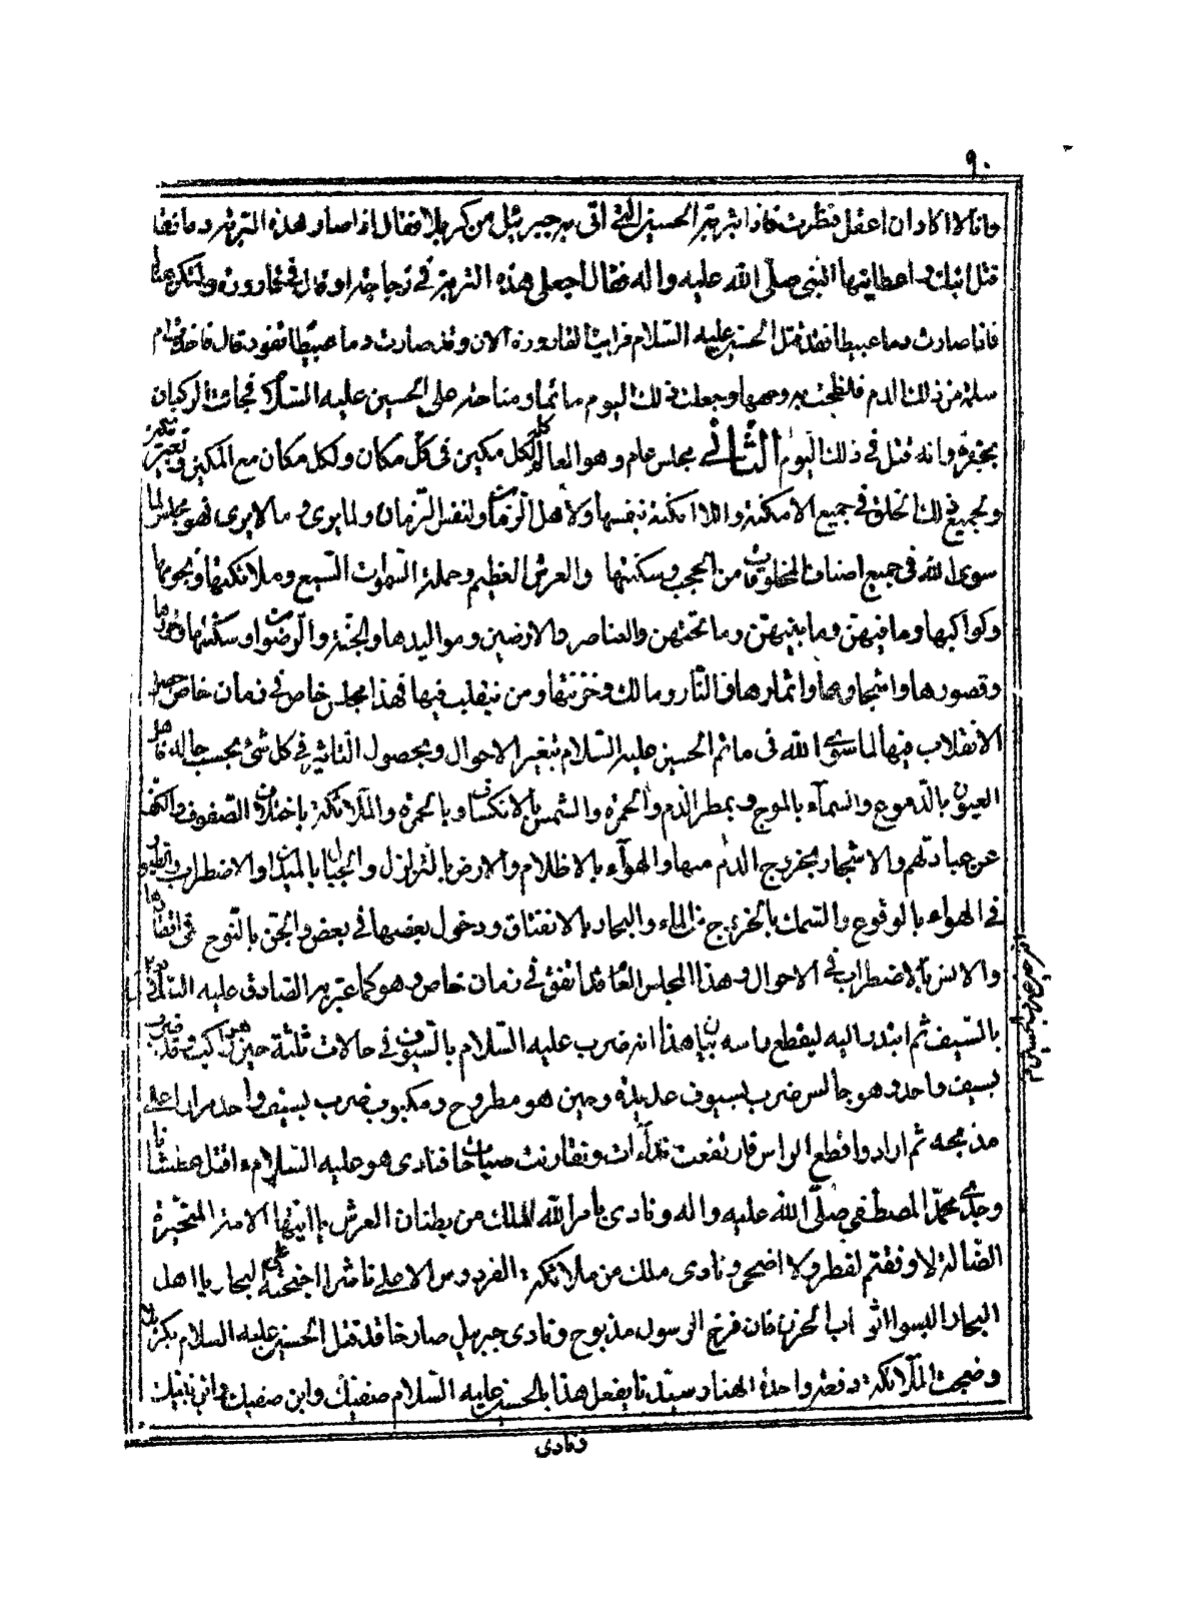 ٩٠
وانا لا اكاد ان اعقل فنظرت فاذا بتربة الحسين التي اتى بها جبرئيل من كربلا فقال اذا صارت هذه التربة دما فقد
قتل ابنك واعطانيها النبي صلّى الله عليه واله فقال اجعلي هذه التربة في زجاجة او قال في قارورة ولتكن عندك
فاذا صارت دما عبيطا فقد قتل الحسين عليه السّلام فرايت القارورة الآن وقد صارت دما عبيطا تفور قال فاخذت ام
سلمة من ذلك الدم فلطخت به وجهها وجعلت ذلك اليوم ماتما ومناحة على الحسين عليه السّلام فجاءت الركبان
بخبره وانه قتل في ذلك اليوم الثّاني مجلس عام وهو العالم كله لكل مكين في كل مكان ولكل مكان مع المكين
ولجميع ذلك الخلق في جميع الامكنة والامكنة بنفسها ولاهل الزمان ولنفس الزمان ولما يرى وما لا يرى فهو مجلس لما
سوى الله في جميع اصناف المخلوقات من الحجب وسكنتها والعرش العظيم وحملته السّموات السّبع وملائكتها ونجومها
وكواكبها وما فيهنّ وما بينهنّ وما تحتهن والعناصر والارضين ومواليدها والجنّة والرضوان وسكنتها وحورها
وقصورها واشجارها واثمارها والنّار ومالك وخزنتها ومن يتقلب فيها فهذا مجلس خاص في زمان خاص حصل
الانقلاب فيها لما سوى الله في ماتم الحسين عليه السّلام بتغير الاحوال وبحصول التاثير في كل شئ بحسب حاله
العيون بالدّموع والسمآء بالموج وبمطر الدّم والحمرة والشمس بالانكساف وبالحمرة والملائكة باختلاف الصّفوف والكف
عن عبادتهم والاشجار بخروج الدّم منها والهوآء بالاظلام والارض بالتزلزل والجبال بالميدان والاضطراب والطيور
في الهواء بالوقوع والسّمك بالخروج من الماء والبحار بالانفتاق ودخول بعضها في بعض والجن بالنّوح في اقطارها
والانس بالاضطراب في الاحوال وهذا المجلس العام قد اتفق في زمان خاص وهو كما عبّر به الصّادق عليه السّلام
بالسّيف ثم ابتدر اليه ليقطع راسه بيان هذا انه ضرب عليه السّلام بالسّيوف في حالات ثلثة حين هو راكب وقد ضرب
بسيف واحد وهو جالس ضرب بسيوف عديدة وحين هو مطروح ومكبوب ضرب بسيف واحد مرارا على
مذبحه ثم ارادوا قطع الراس فارتفعت ندآءات وتقارنت صيحات فنادى هو عليه السّلام ءاقتل عطشانا
وجدّي محمّد المصطفى صلّى الله عليه واله ونادى بامر الله الملك من بطنان العرش يا ايتها الامة المتحيّرة
الضّالة لا وفقتم لفطر ولا اضحى ونادى ملك من ملائكة الفردوس الاعلى ناشرا اجنحته على البحار يا اهل
البحار البسوا اثواب الحزن فان فرخ الرسول مذبوح ونادى جبرئيل صارخا قد قتل الحسين عليه السّلام بكربلا
وضجت الملآئكة دفعة واحدة الهنا وسيّدنا يفعل هذا بالحسين عليه السّلام صفيك وابن صفيك وابن نبيك
ونادى